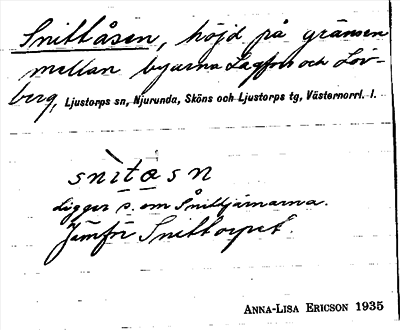 Snittåsen, höjd på gränsen
mellan byarna Lagfors och Löv-
berg, Ljustorps sn, Njurunda, Sköns och Ljustorps tg, Västernorrl. l.
snìtåsn
Ligger s. om Snittjärnarna.
Jämför Snittorpet.
ANNA-LISA ERICSON 1935